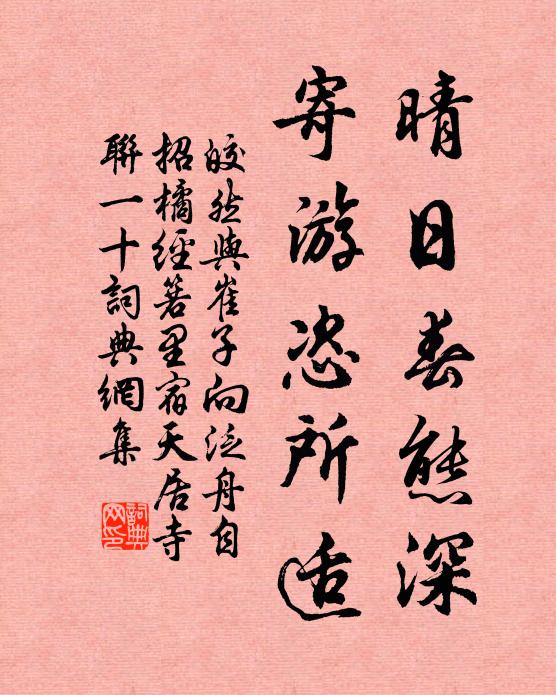 晴日春態深
寄游恣所适
皎然與崔子向泛舟自
招橘經箬里宿天居寺
聯一十詞典網集
詞典網印